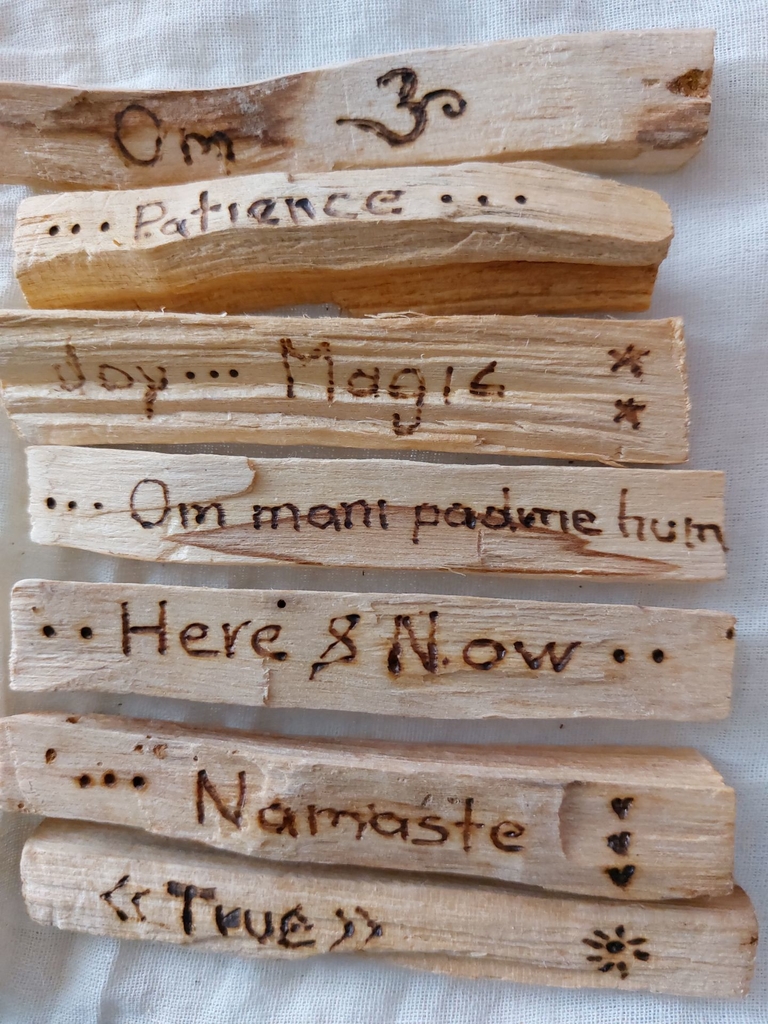 Om ॐ
... Patience ...
Joy... Magic
... Om mani padme hum
.. Here & Now ..
... Namaste
« True »